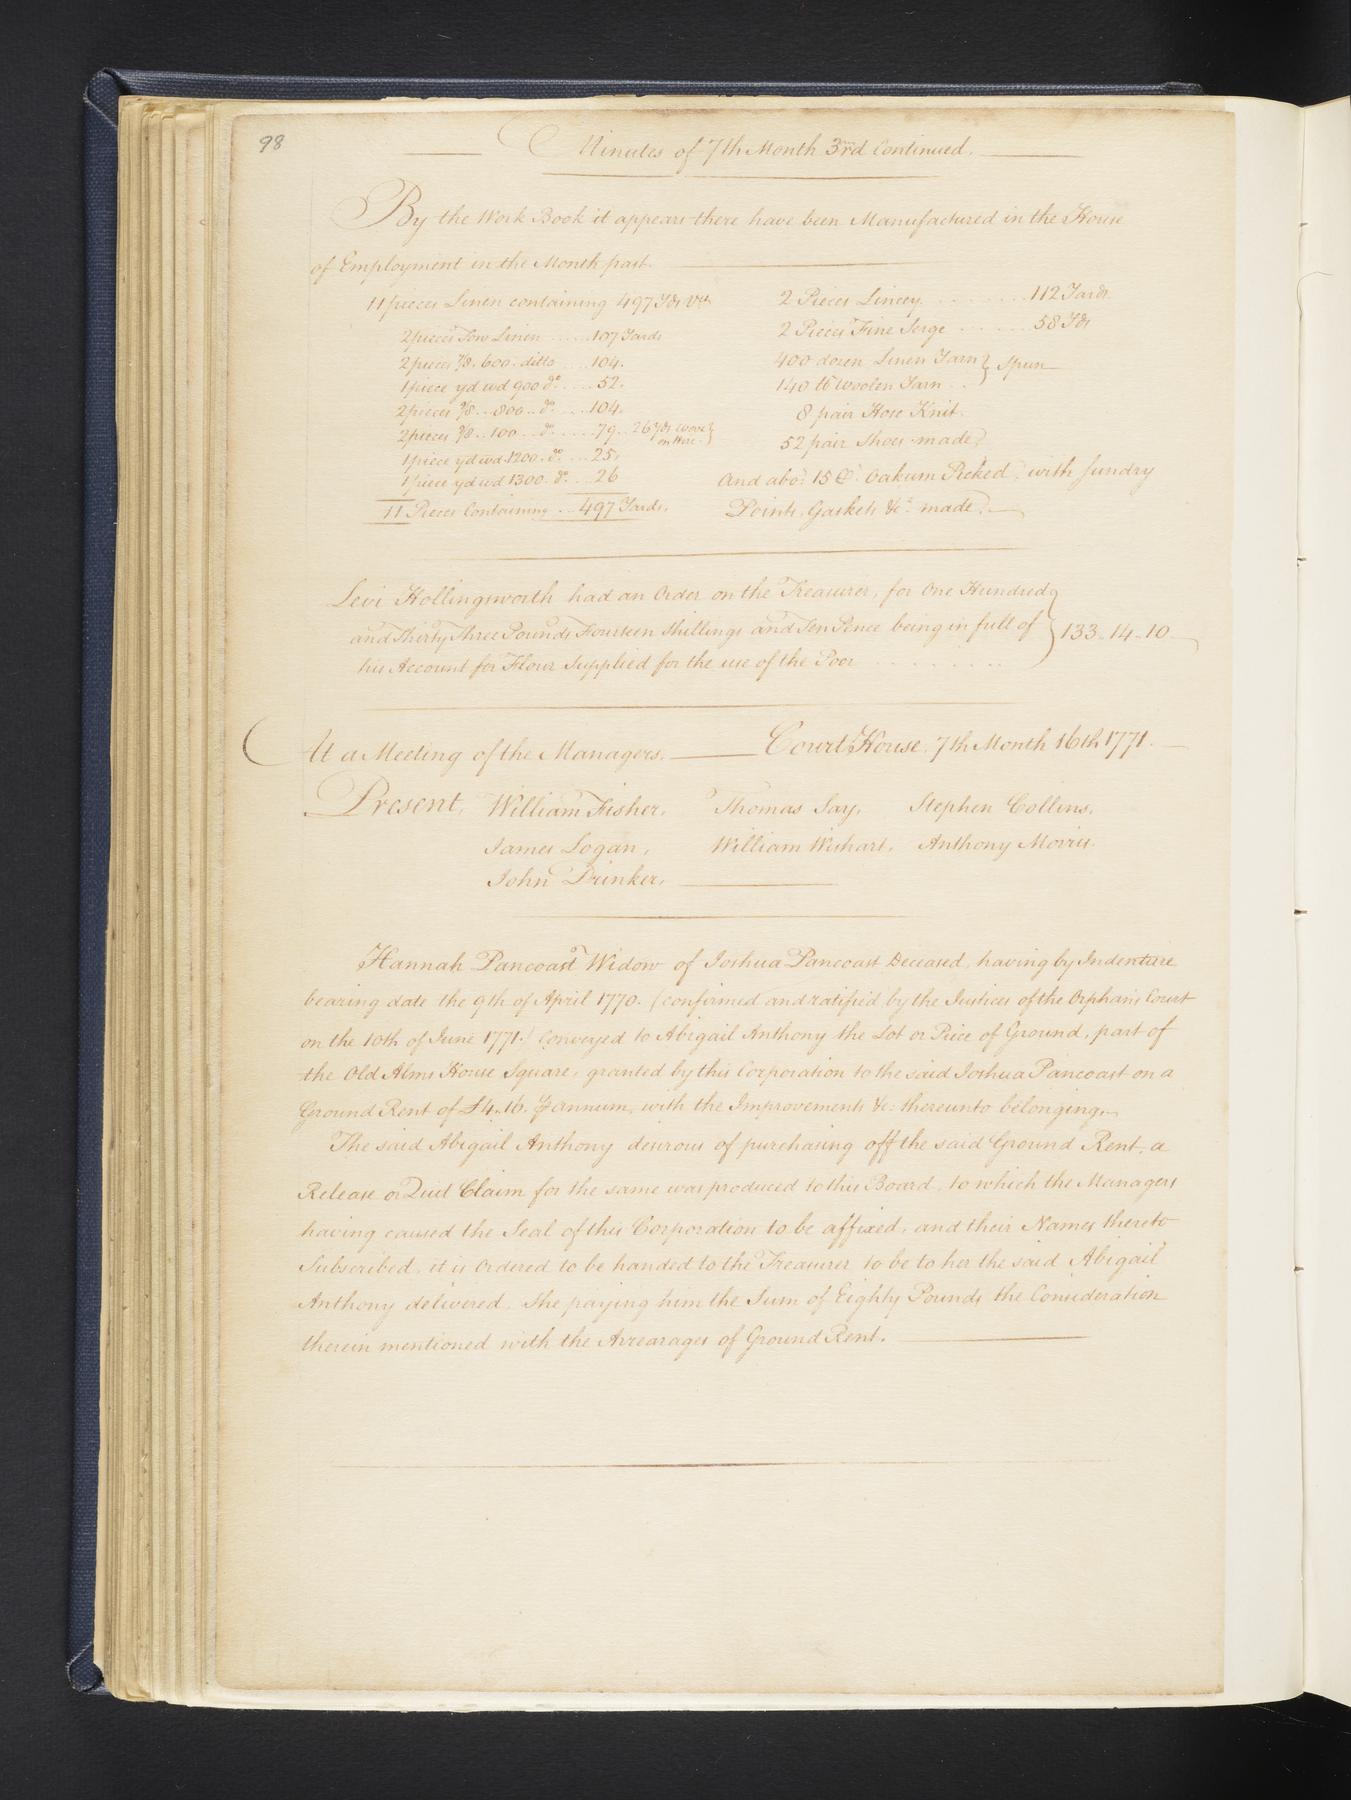 98
Minutes of 7th Month 3rd Continued.
By the Work Book it appears there have been Manufactured in the House
of Employment in the Month past.
11 pieces Linen containing 497 Yds Vizt
2 pieces Tow Linen ...... 107 Yards
2 pieces 7/8. 600. ditto ... 104.
1 piece yd wd 900 do. .... 52.
2 pieces 7/8 .. 800 .. do. .... 104.
2 pieces 7/8 .. 100 .. do. ..... 79 .. 26 Yds wove
on Hire.
1 piece yd wd 1200. do. ... 25.
1 piece yd wd 1300. do. .. 26
11 Pieces Containing ... 497 Yards.
2 Pieces Lincey. ........ 112 Yards.
2 Pieces Fine Serge ...... 58 Yds
400 dozen Linen Yarn } Spun
140 lb Woolen Yarn ...
8 pair Hose Knit.
52 pair Shoes made
And abot. 15 Ct. Oakum Picked, with sundry
Points, Gaskets &ca. made.
Levi Hollingsworth had an Order on the Treasurer, for One Hundred
and Thirty Three Pounds Fourteen Shillings and Ten Pence being in full of } 133 .. 14 .. 10
his Account for Flour Supplied for the use of the Poor ........
At a Meeting of the Managers. Court House. 7th Month 16th 1771.
Present, William Fisher, Thomas Say, Stephen Collins.
James Logan, William Wishart, Anthony Morris.
John Drinker,
Hannah Pancoast Widow of Joshua Pancoast Deceased, having by Indenture
bearing date the 9th of April 1770. (confirmed and ratified by the Justices of the Orphans Court
on the 10th of June 1771.) Conveyed to Abigail Anthony the Lot or Piece of Ground, part of
the Old Alms House Square, granted by this Corporation to the said Joshua Pancoast on a
Ground Rent of £4.. 16. ⅌ annum, with the Improvements &c: thereunto belonging.
The said Abigail Anthony desirous of purchasing off the said Ground Rent, a
Release or Quit Claim for the same was produced to this Board, to which the Managers
having caused the Seal of this Corporation to be affixed, and their Names thereto
Subscribed, it is Ordered to be handed to the Treasurer to be to her the said Abigail
Anthony delivered, She paying him the Sum of Eighty Pounds the Consideration
therein mentioned with the Arrearages of Ground Rent.